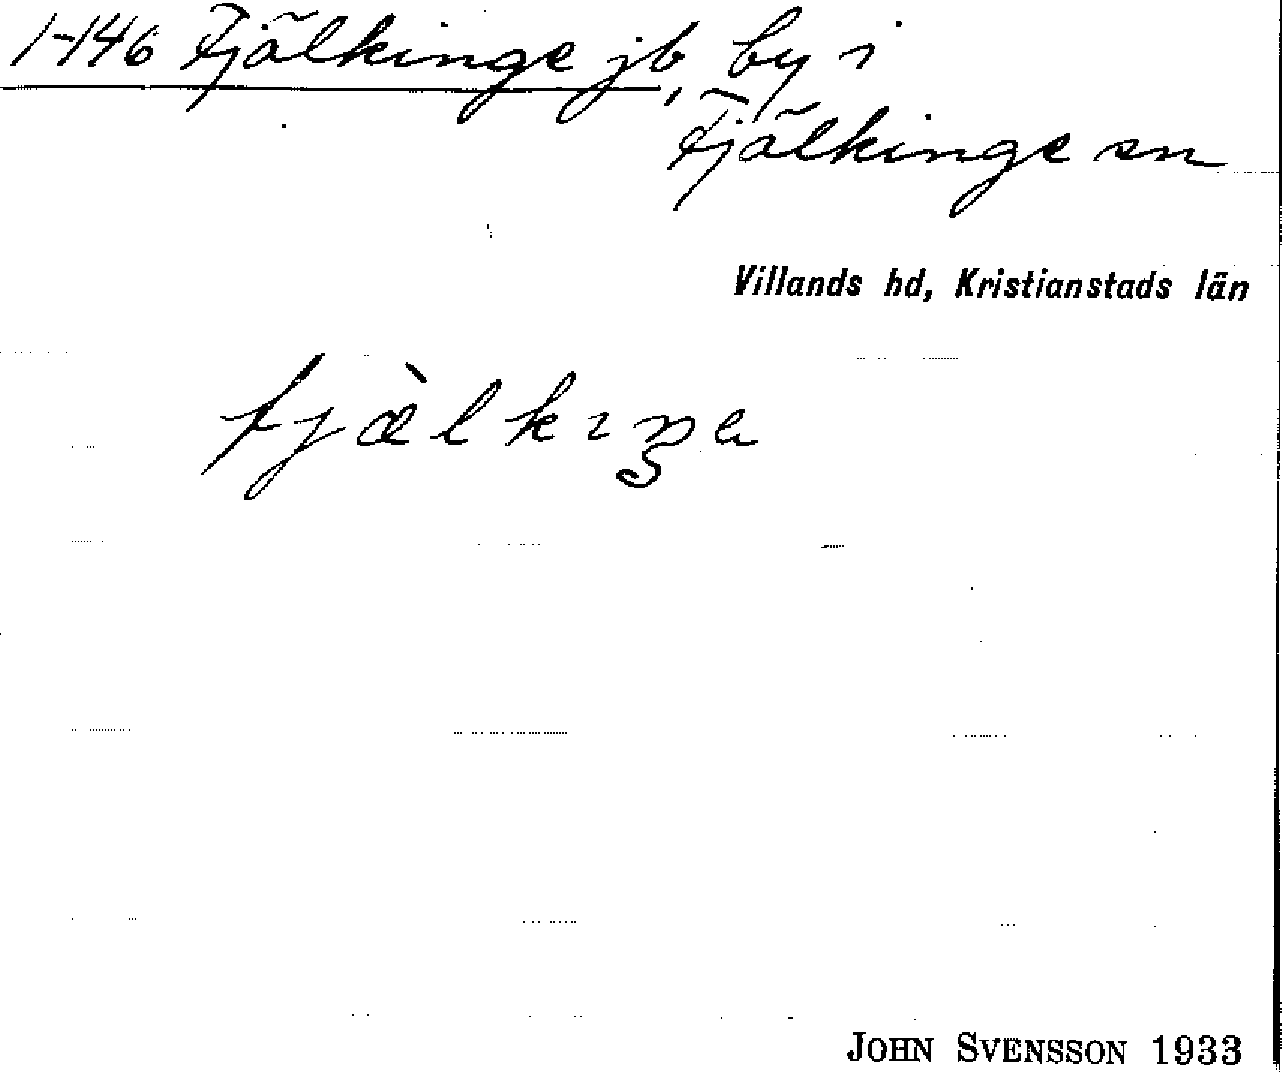 1-146 Fjälkinge jb, by i
Fjälkinge sn
Villands hd, Kristianstads län
fjæ̀lkıŋa
JOHN SVENSSON 1933